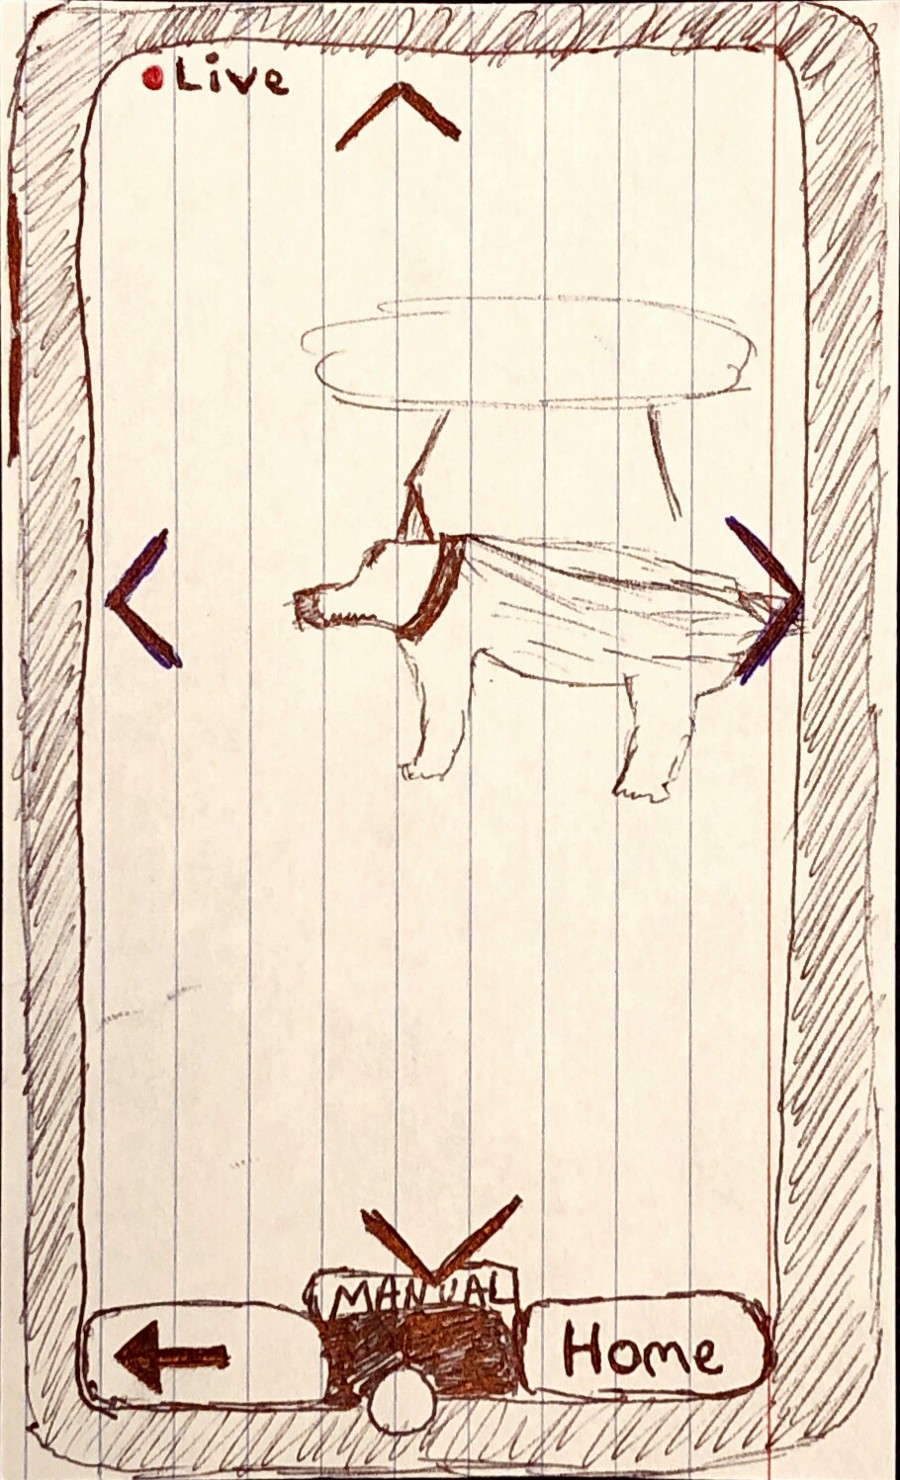 Live
MANUAL
Home